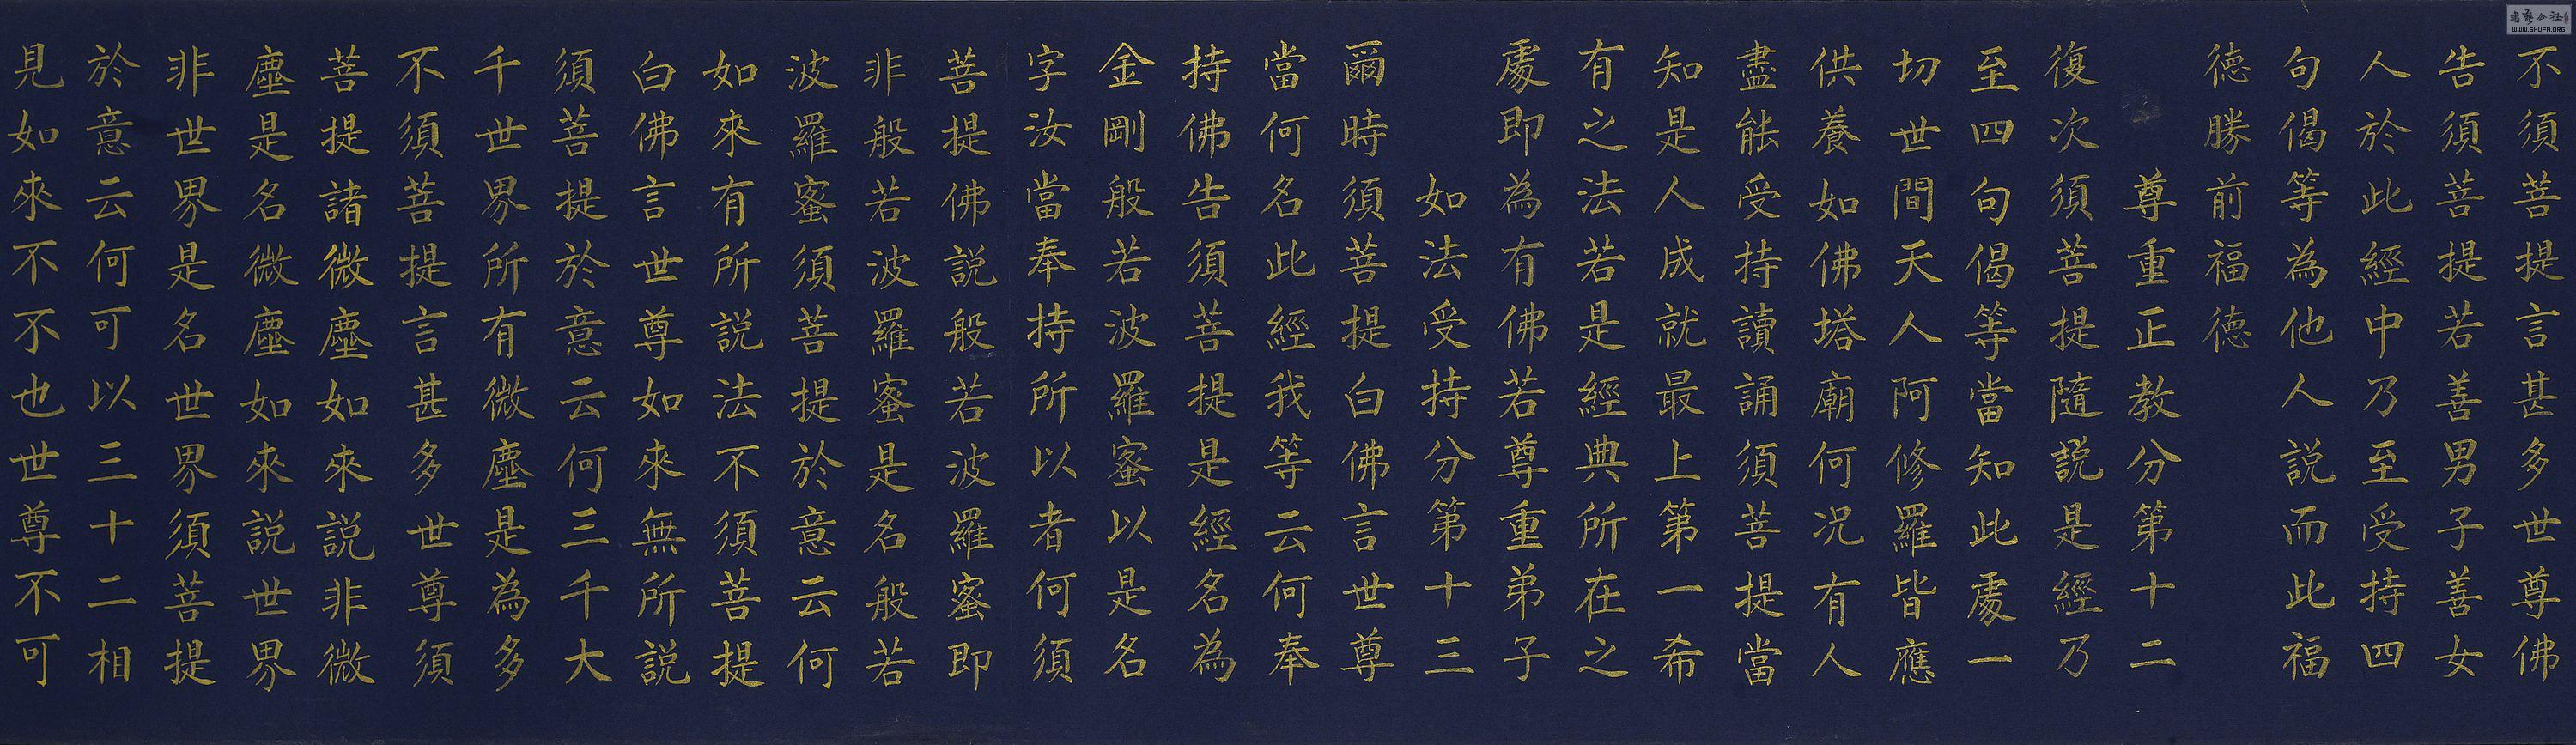 不須菩提言甚多世尊佛
告須菩提若善男子善女
人於此經中乃至受持四
句偈等為他人說而此福
德勝前福德
尊重正教分第十二
復次須菩提隨說是經乃
至四句偈等當知此處一
切世間天人阿修羅皆應
供養如佛塔廟何況有人
盡能受持讀誦須菩提當
知是人成就最上第一希
有之法若是經典所在之
處即為有佛若尊重弟子
如法受持分第十三
爾時須菩提白佛言世尊
當何名此經我等云何奉
持佛告須菩提是經名為
金剛般若波羅蜜以是名
字汝當奉持所以者何須
菩提佛說般若波羅蜜即
非般若波羅蜜是名般若
波羅蜜須菩提於意云何
如來有所說法不須菩提
白佛言世尊如來無所說
須菩提於意云何三千大
千世界所有微塵是為多
不須菩提言甚多世尊須
菩提諸微塵如來說非微
塵是名微塵如來說世界
非世界是名世界須菩提
於意云何可以三十二相
見如來不不也世尊不可
WWW.SHUFA.ORG